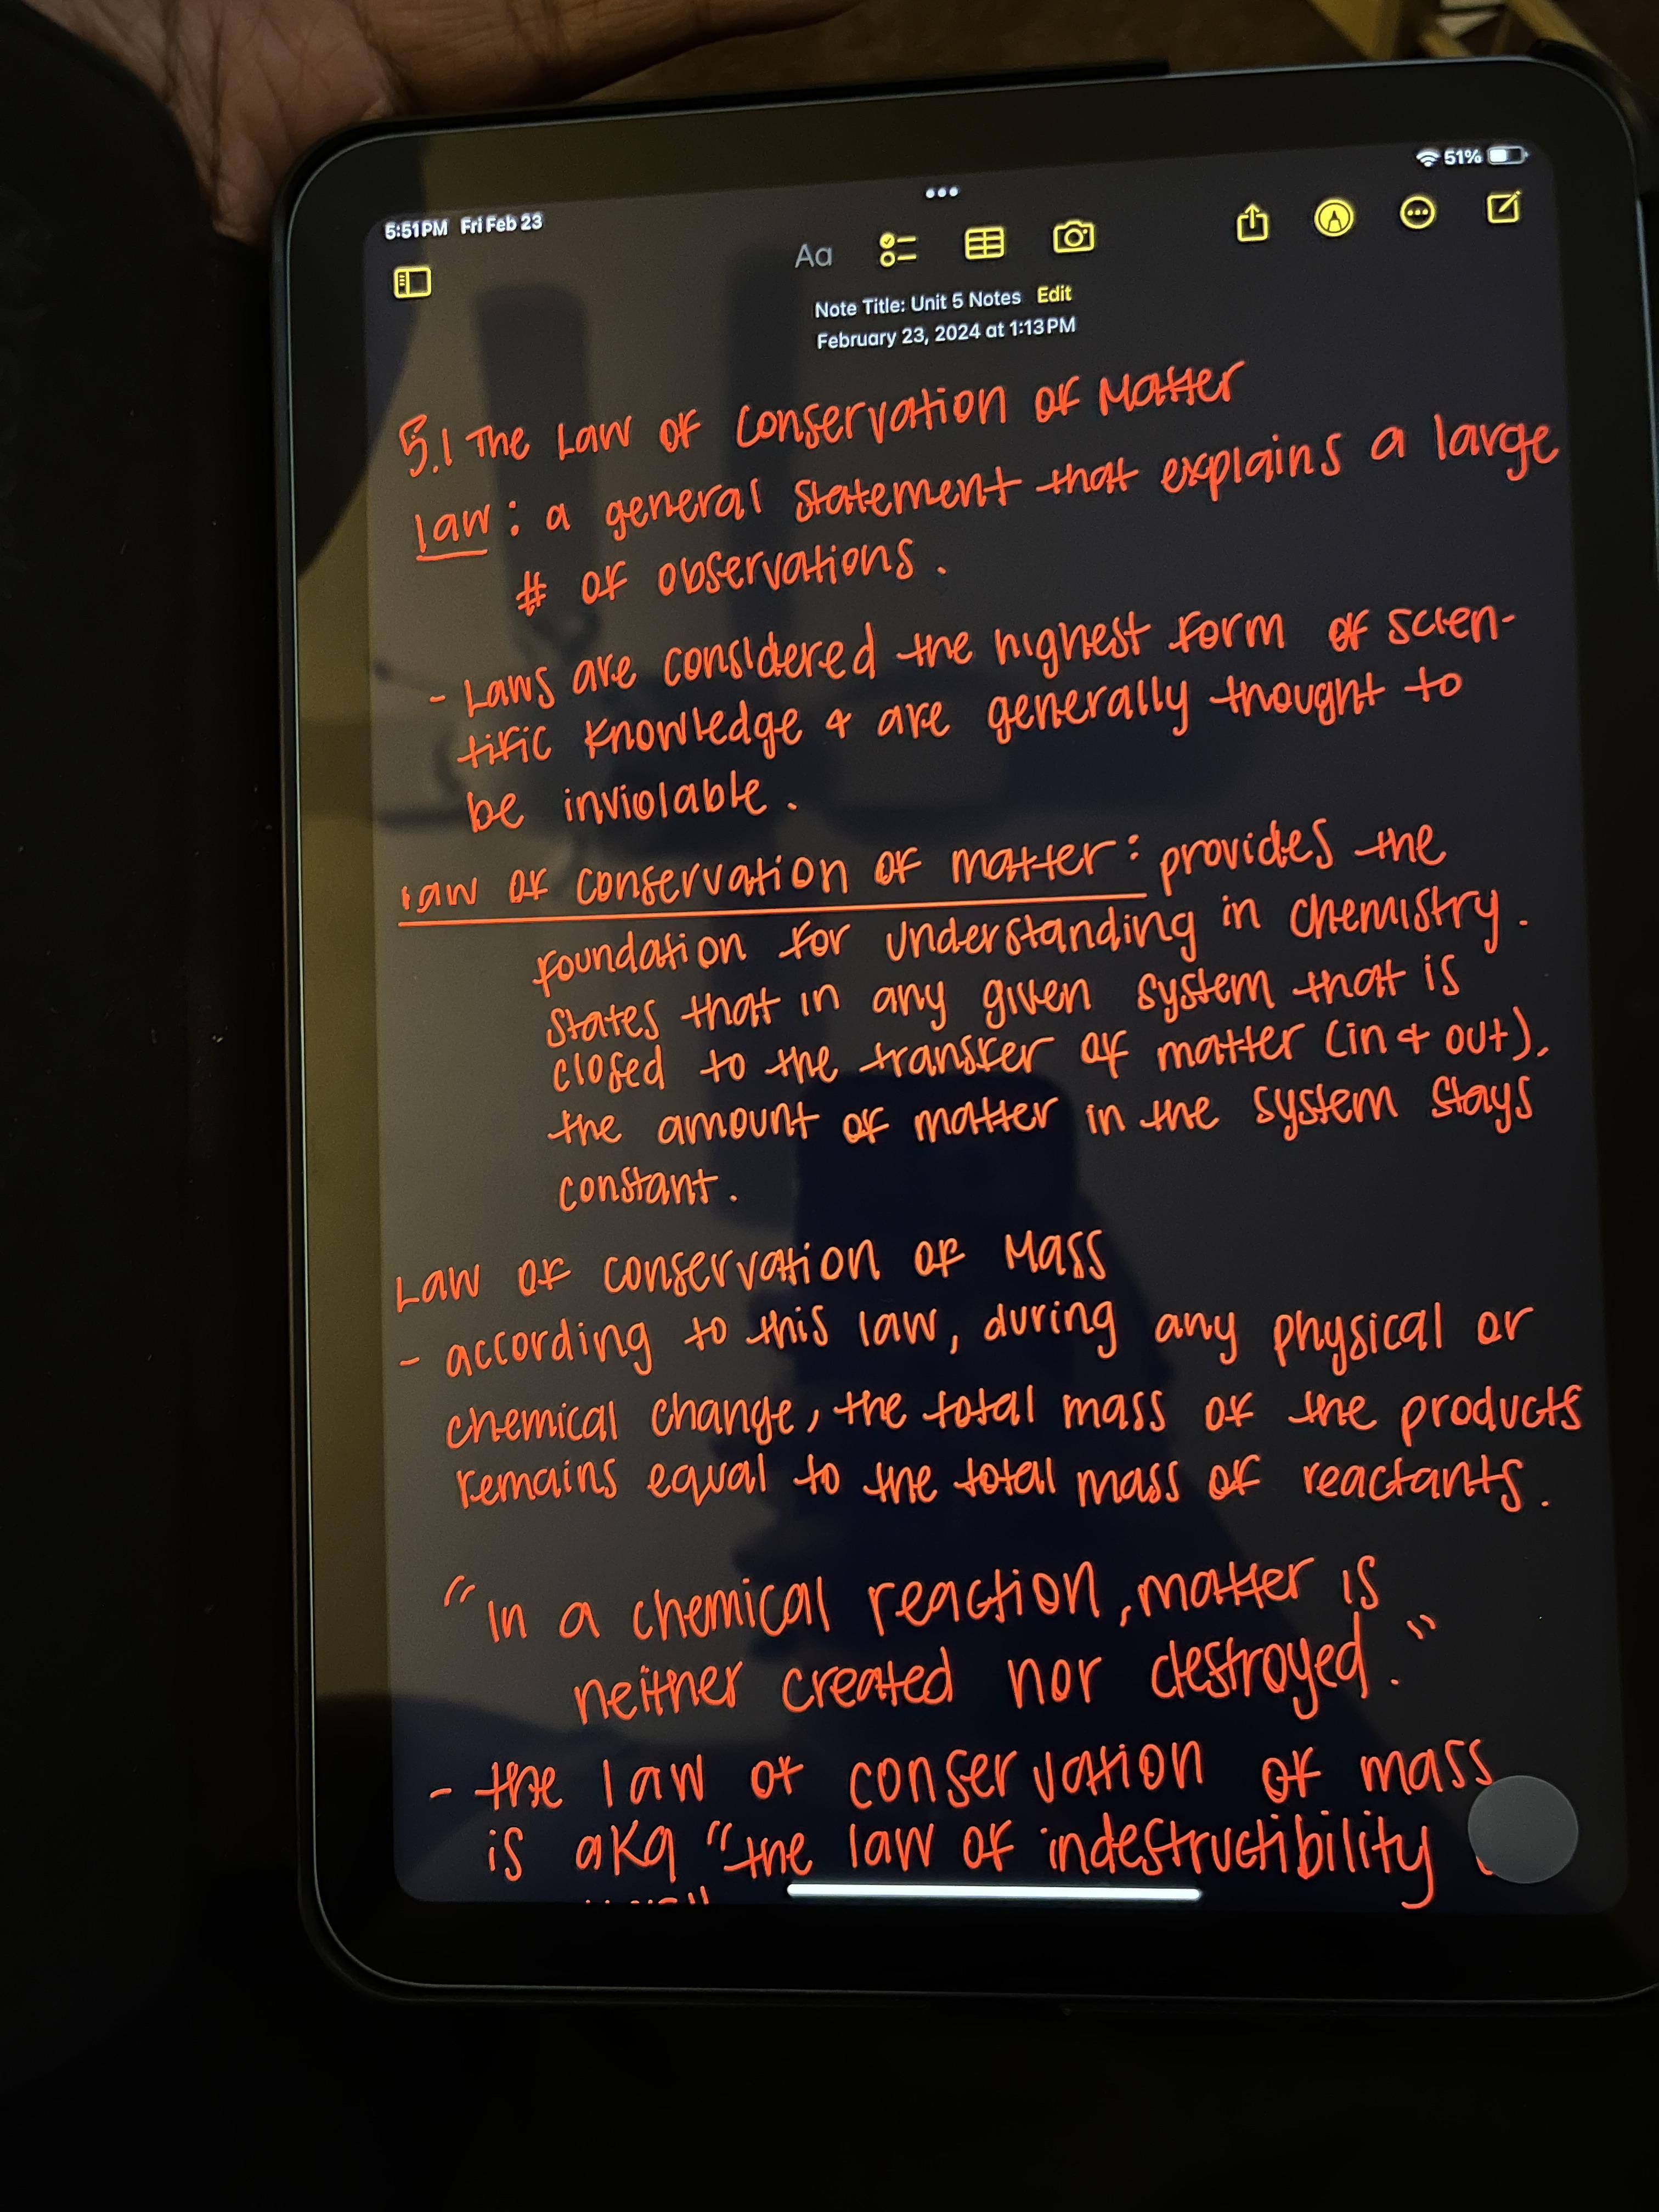 5:51 PM Fri Feb 23
51%
Aa
Note Title: Unit 5 Notes Edit
February 23, 2024 at 1:13 PM
5.1 The Law of Conservation of Matter
law: a general statement that explains a large
# of observations.
- Laws are considered the highest form of scien-
tific knowledge & are generally thought to
be inviolable.
law of conservation of matter: provides the
foundation for understanding in chemistry.
States that in any given system that is
closed to the transfer of matter (in & out),
the amount of matter in the system stays
constant.
Law of conservation of Mass
- according to this law, during any physical or
chemical change, the total mass of the products
remains equal to the total mass of reactants.
"In a chemical reaction, matter is
neither created nor destroyed."
- the law of conservation of mass
is aka "the law of indestructibility